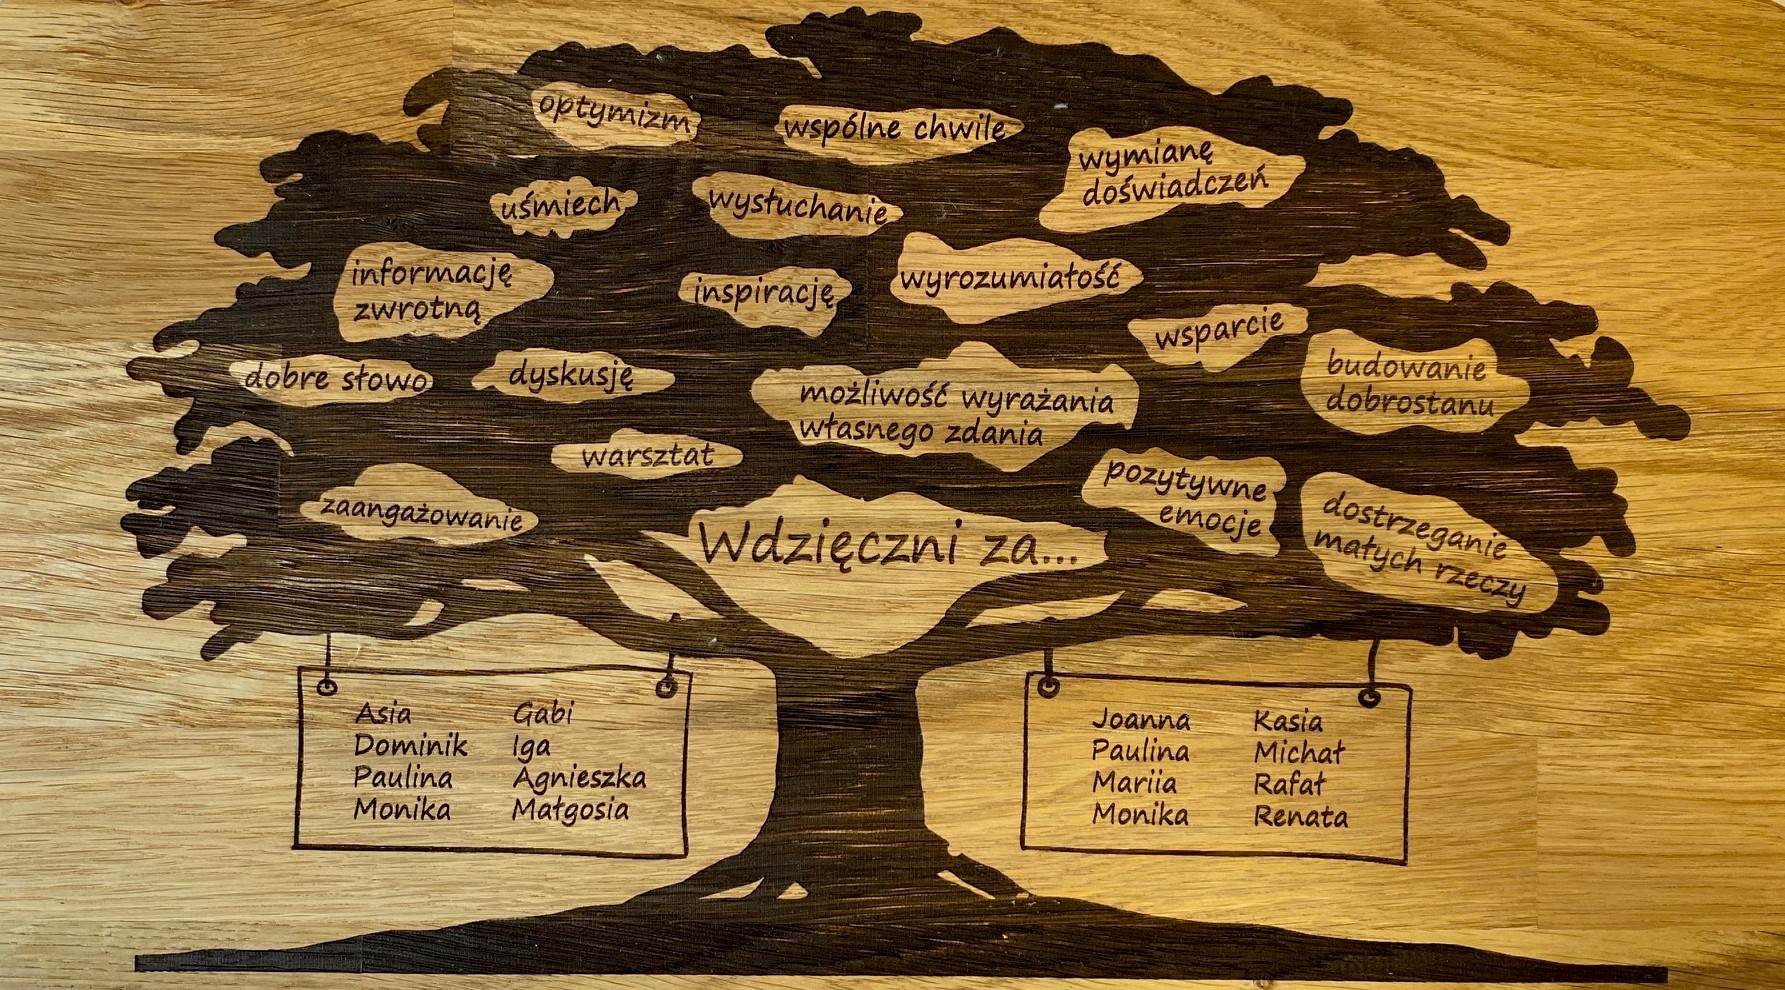 optymizm
wspólne chwile
wymianę
doświadczeń
uśmiech
wysłuchanie
informację
zwrotną
inspirację
wyrozumiałość
wsparcie
dobre słowo
dyskusję
możliwość wyrażania
własnego zdania
budowanie
dobrostanu
warsztat
zaangażowanie
pozytywne
emocje
dostrzeganie
małych rzeczy
Wdzięczni za...
Asia
Dominik
Paulina
Monika
Gabi
Iga
Agnieszka
Małgosia
Joanna
Paulina
Mariia
Monika
Kasia
Michał
Rafał
Renata